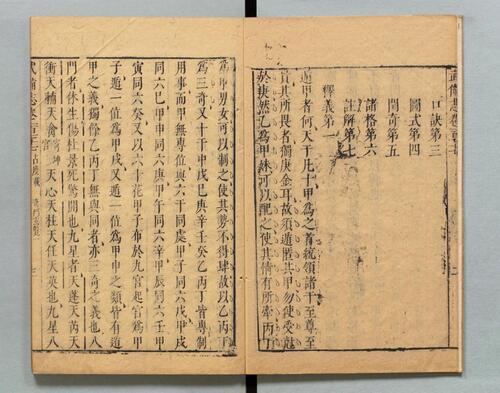 武備志卷
口訣第三
圖式第四
開奇第五
諸格第六
註解第七
釋義第一
遁甲者何天干凡十甲為之首統領諸干至尊至
貴其所畏者獨庚金耳故須遁匿其甲勿使受尅
於庚然乙為甲妹可以配之使其情有所牽丙丁
為甲男女可以制之使其勢不得肆故以乙丙丁
為三奇又十干中戊己庚辛壬癸乙丙丁皆專制
用事而甲無專位與六干同處甲子同六戊甲戌
同六己甲申同六庚甲午同六辛甲辰同六壬甲
寅同六癸又以六十花甲子布於九宮起宮為甲
子遁一位為甲戌又遁一位為甲申之類皆有遁
甲之義獨餘乙丙丁無與同者亦三奇之義也八
門者休生傷杜景死驚開也九星者天蓬天芮天
衝天輔天禽天心天柱天任天英也九星八
武備志卷 占度載 奇門